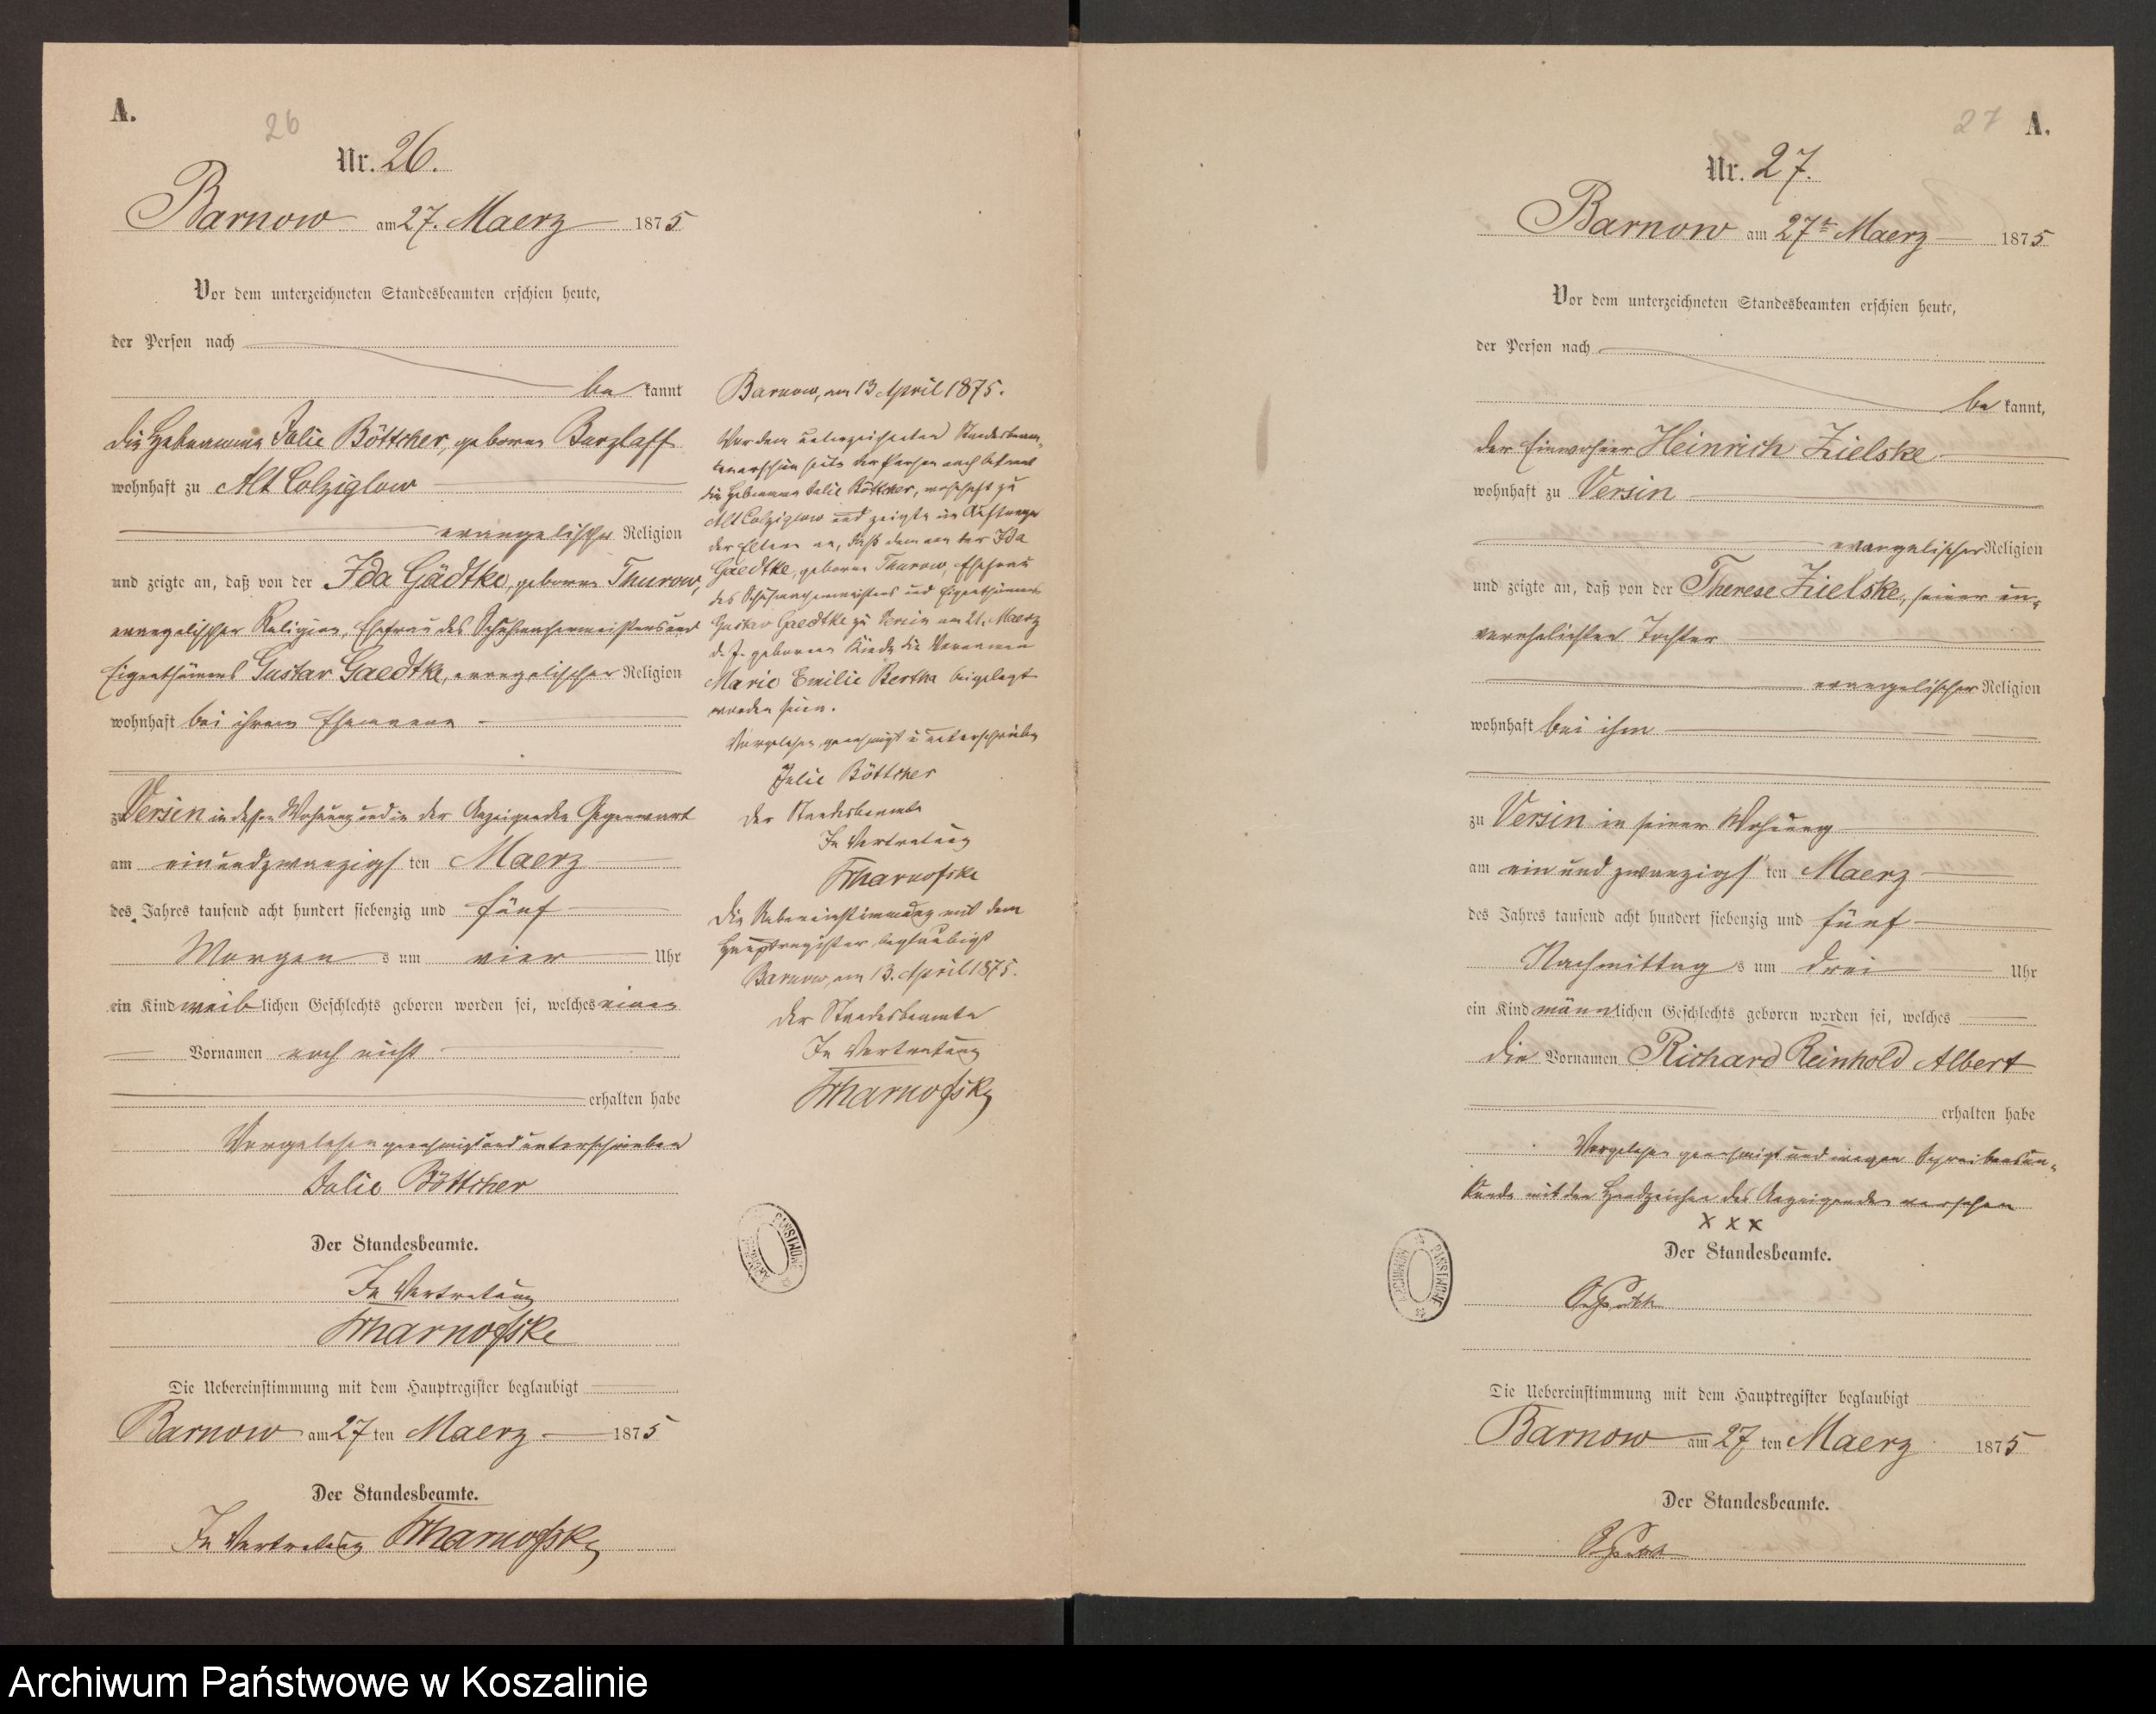 A.
26
Nr. 26.
Barnow am 27. Maerz 1875
Vor dem unterzeichneten Standesbeamten erschien heute,
der Person nach
be kannt
die Hebamme Julie Böttcher, geborne Barzlaff
wohnhaft zu Alt Colziglow
evangelischer Religion
und zeigte an, daß von der Ida Gädtke, geborne Thurow,
evangelischer Religion, Ehefrau des Schuhmachermeisters und
Eigenthümers Gustav Gaedtke, evangelischer Religion
wohnhaft bei ihrem Ehemanne
zu Versin in dessen Wohnung und in der Anzeigenden Gegenwart
am einundzwanzigs ten Maerz
des Jahres tausend acht hundert siebenzig und fünf
Morgen s um vier Uhr
ein Kind weib lichen Geschlechts geboren worden sei, welches einen
Vornamen noch nicht
erhalten habe
Vorgelesen genehmigt und unterschrieben
Julie Böttcher
Der Standesbeamte.
In Vertretung
Die Uebereinstimmung mit dem Hauptregister beglaubigt
Barnow am 27 ten Maerz 1875
Der Standesbeamte.
In Vertretung
Barnow, am 13 April 1875.
Vor dem unterzeichneten Standesbeam-
ten erschien heute der Person nach bekannt
die Hebamme Julie Böttcher, wohnhaft zu
Alt Colziglow und zeigte im Auftrage
der Eltern an, daß dem von der Ida
Gaedtke, geborne Thurow, Ehefrau
des Schuhmachermeisters und Eigenthümers
Gustav Gaedtke zu Versin am 21. Maerz
d. J. geborenen Kinde die Vornamen
Marie Emilie Bertha beigelegt
worden seien.
Vorgelesen, genehmigt u unterschrieben
Julie Böttcher
Der Standesbeamte
In Vertretung
Die Uebereinstimmung mit dem
Hauptregister beglaubigt
Barnow, am 13. April 1875.
Der Standesbeamte
In Vertretung
ARCHIWUM PAŃSTWOWE
27
A.
Nr. 27.
Barnow am 27te Maerz 1875
Vor dem unterzeichneten Standesbeamten erschien heute,
der Person nach
be kannt,
der Einwohner Heinrich Zielske
wohnhaft zu Versin
evangelischer Religion
und zeigte an, daß von der Therese Zielske, seiner un-
verehelichten Tochter
evangelischer Religion
wohnhaft bei ihm
zu Versin in seiner Wohnung
am ein und zwanzigs ten Maerz
des Jahres tausend acht hundert siebenzig und fünf
Nachmittag s um drei Uhr
ein Kind männ lichen Geschlechts geboren worden sei, welches
die Vornamen Richard Reinhold Albert
erhalten habe
Vorgelesen genehmigt und wegen Schreibensun-
kunde mit den Handzeichen des Anzeigenden versehen
x x x
Der Standesbeamte.
Die Uebereinstimmung mit dem Hauptregister beglaubigt
Barnow am 27 ten Maerz 1875
Der Standesbeamte.
ARCHIWUM PAŃSTWOWE
Archiwum Państwowe w Koszalinie